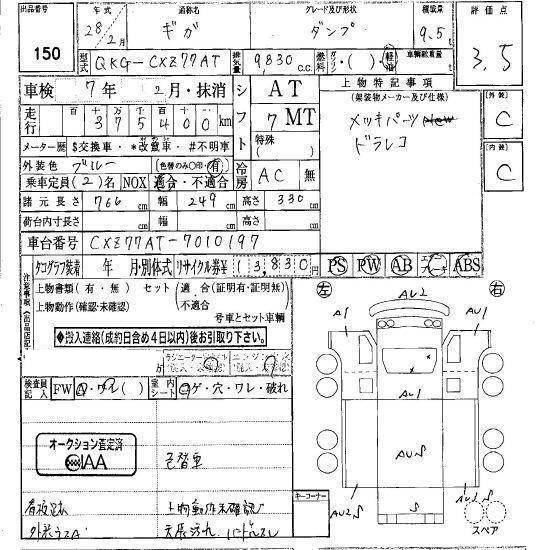 出品番号 150
年式 28年2月 通称名 ギガ グレード及び形状 ダンプ 積載量 9.5t
型式 QKG-CXZ77AT 排気量 9,830 C.C. 燃料 ガソリン・( )・軽油 車輌総重量 t
評価点 3.5
車検 7年 2月・抹消
走行 十万千百十 375400km
メーター歴 $交換車・*改ざん車・#不明車
外装色 ブルー (色替のみ○印・有)
乗車定員(2)名 NOX 適合・不適合
シフト AT 7 MT 特殊( )
冷房 AC 無
諸元長さ 766cm 幅 249cm 高さ 330cm
荷台内寸長さ cm 幅 cm 高さ cm
車台番号 CXZ77AT-7010197
上物特記事項
(架装物メーカー及び仕様)
メッキパーツ
ドラレコ
外装 C
内装 C
タコグラフ装着 年 月・別体式 リサイクル券¥ 13,830円
PS PW AB エアサス ABS
注意事項(出品店記入)
上物書類(有・無) セット 適合(証明有・証明無)
上物動作(確認・未確認) 不適合
号車とセット車輌
◆搬入連絡(成約日含め4日以内)後お引取り下さい。◆
検査員記入 FW 室内シート コゲ・穴・ワレ・破れ
オークション査定済
IAA
色替車
看板足跡 上物動作未確認
外装うすA 天張汚れ
左 右
AU2
A1 AU1
AU1
AUS
AU2S AU2S
キーコーナー
S S
スペア